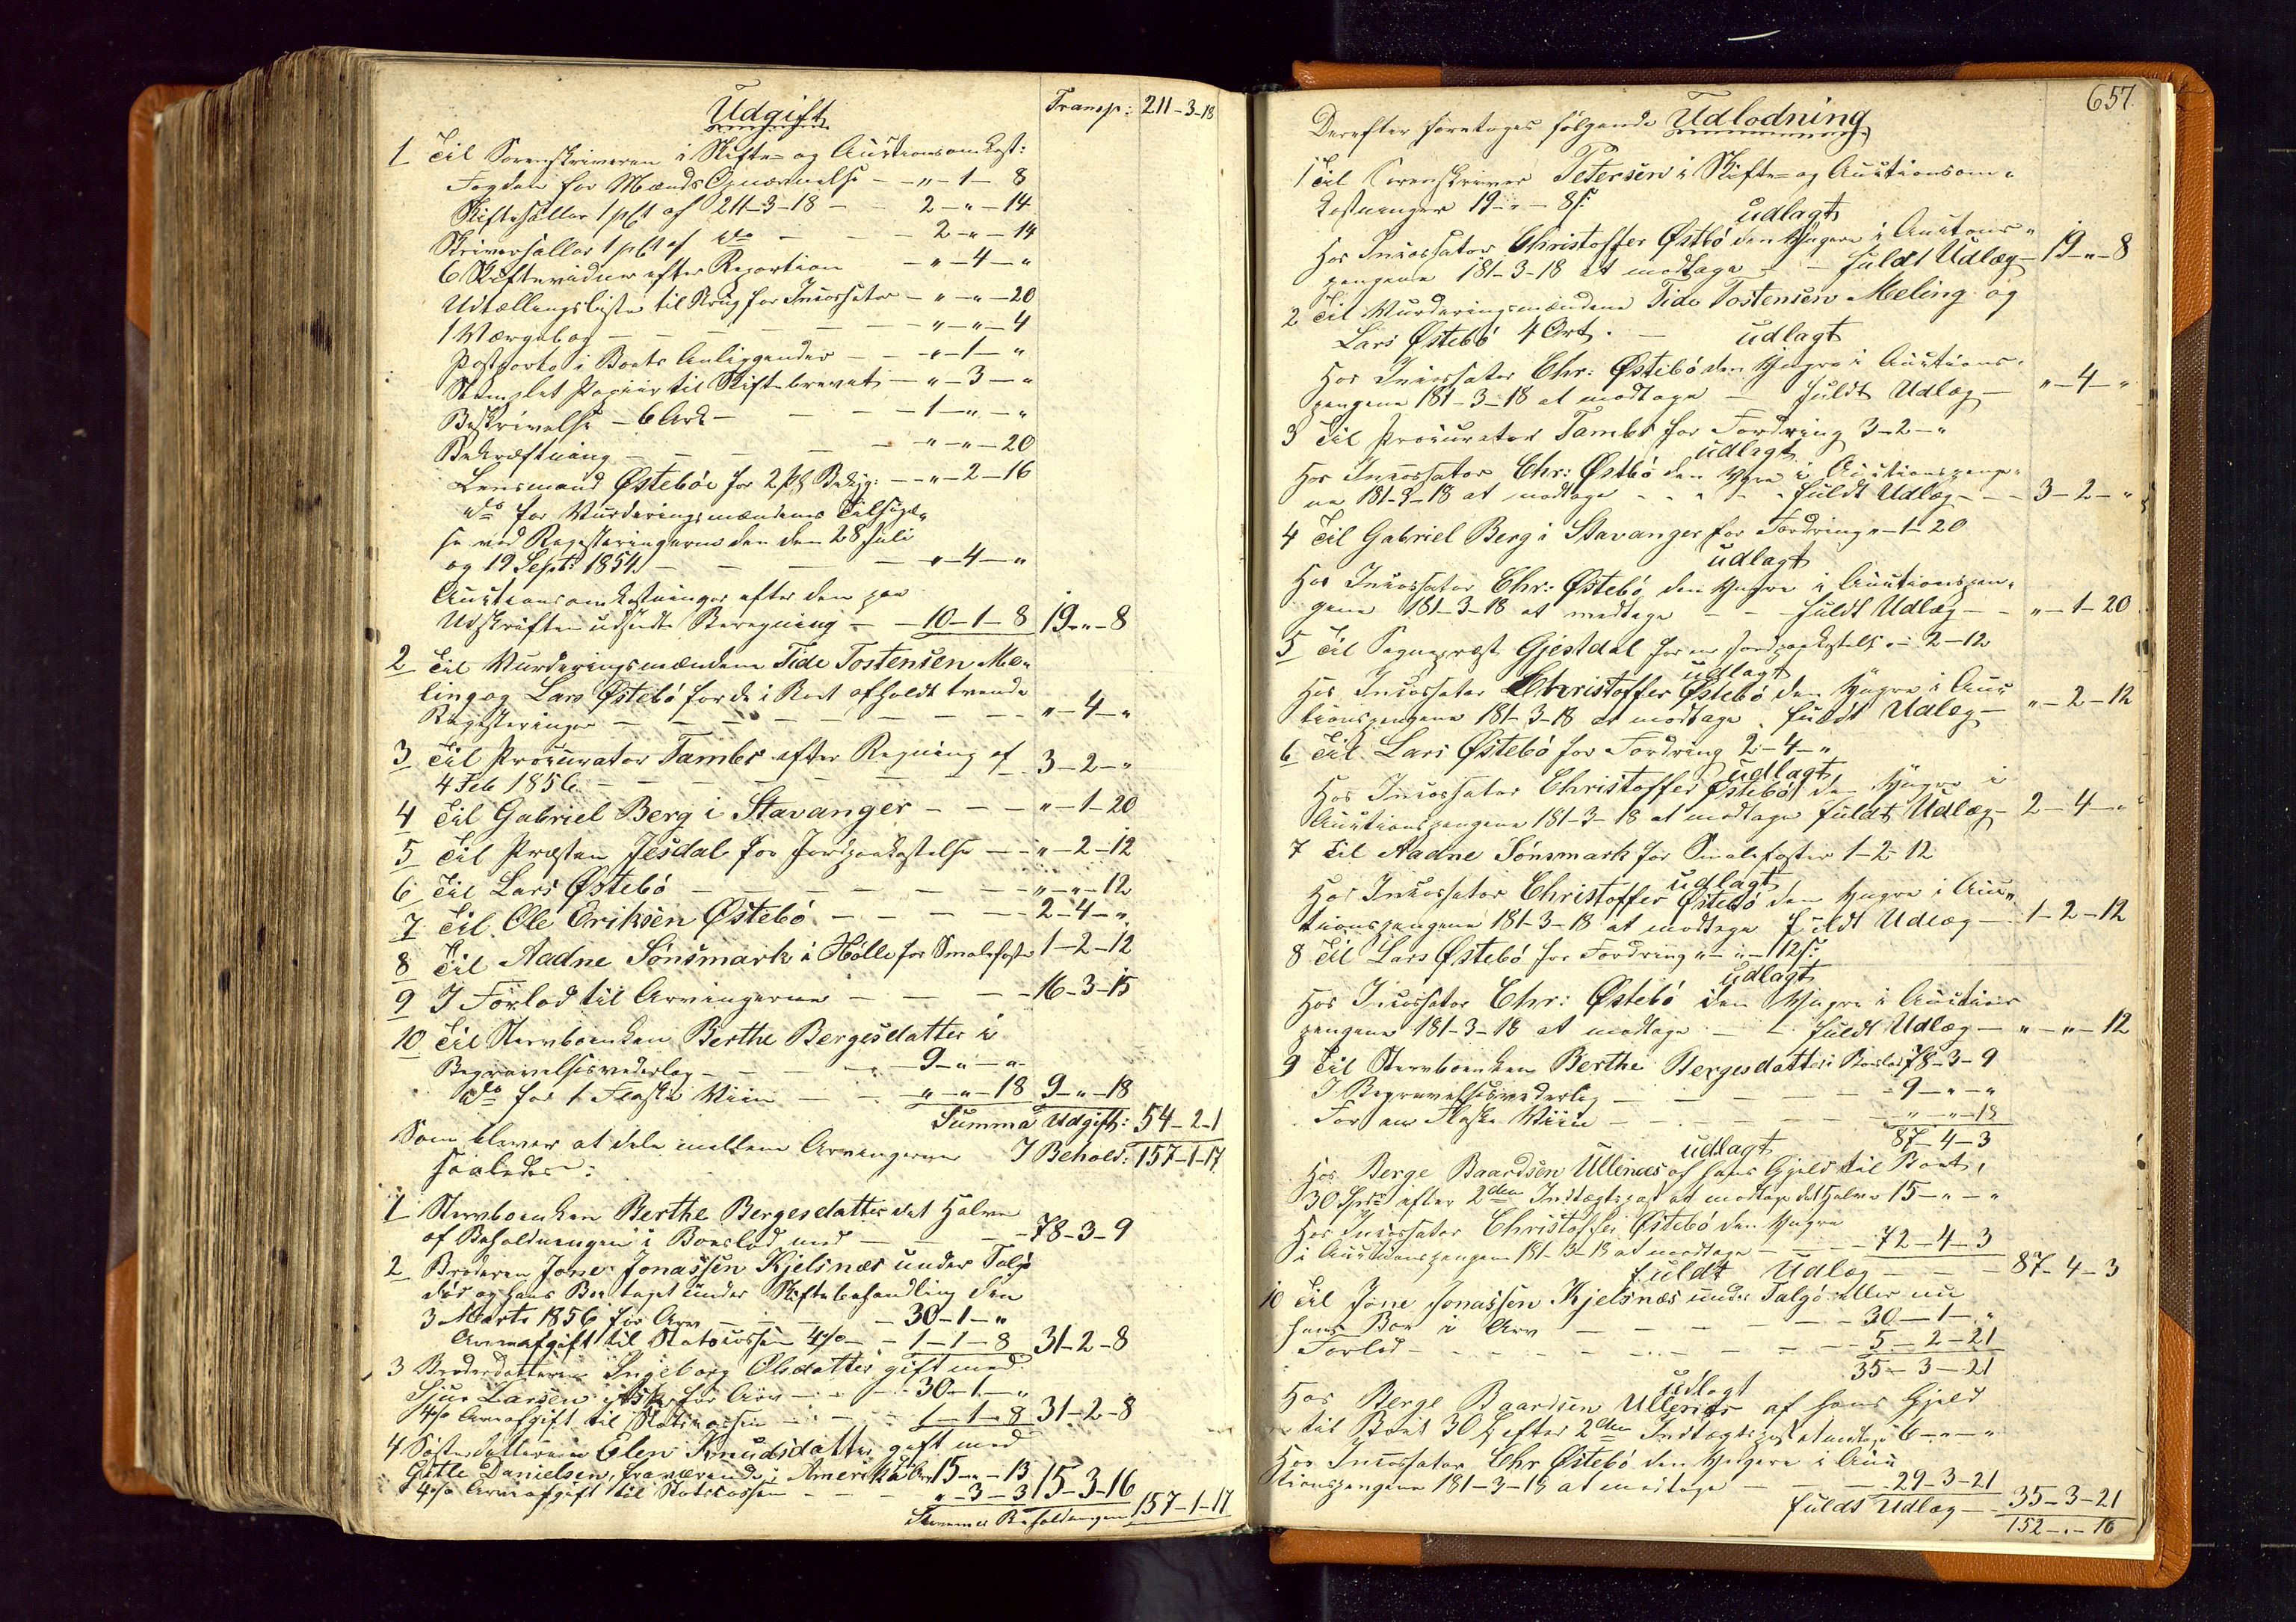 Udgift
Transp: 211-3-18
1 Til Sorenskriveren i Skifte- og Auctionsomkost:
Fogden for Mænds Opnævnelse - „-1-8
Skiftesallar 1 pCt af 211-3-18 - - 2-„-14
Skriversallar 1 pCt af do - - 2-„-14
6 Skiftevidner efter Repartion - „-4-„
Udtællingsliste til Brug for Incassator - „-„-20
1 Værgebog - - - „-„-4
Postporto i Boets Anliggender - - „-1-„
Stemplet Papiir til Skiftebrevet - „-3-„
Beskrivelse - 6 Ark - - - 1-„-„
Bekræftning - - - „-„-20
Lensmand Østebøe for 2 Pl Bekjg: - „-2-16
do for Vurderingsmændenes Tilsigel„
se ved Registeringerne den den 28 Juli
og 19 Septr 1854 - - - „-4-„
Auctionsomkostninger efter den paa
Udskriften udsendte Beregning - - 10-1-8 19-„-8
2 Til Vurderingsmændene Tide Tostensen Me„
ling og Lars Østebö for de i Boet afholdt tvende
Registeringer - - - - „-4-„
3 Til Procurator Tambs efter Regning af
4 Feb 1856 - - - 3-2-„
4 Til Gabriel Berg i Stavanger - - - „-1-20
5 Til Præsten Jesdal for Jordpaakastelse - - „-2-12
6 Til Lars Østebö - - - - „-„-12
7 Til Ole Eriksen Østebö - - - - 2-4-„
8 Til Aadne Sönsmark i Hölle for Smalefoster 1-2-12
9 I Forlod til Arvingerne - - - 16-3-15
10 Til Stervboenken Berthe Bergesdatter i
Begravelsesvederlag - - - 9-„-„
do for 1 Flaske Viin - - - „-„-18 9-„-18
Summa Udgift: 54-2-1
Som bliver at dele mellem Arvingerne I Behold: 157-1-17
saaledes:
1 Stervboenken Berthe Bergesdatter det Halve
af Beholdningen i Boeslod med - - 78-3-9
2 Broderen Jone Jonassen Kjelsnæs under Talgö
död og hans Boe taget under Skiftebehandling den
3 Marts 1856 for Arv - - - 30-1-„
Arveafgift til Statscassen 4% - 1-1-8 31-2-8
3 Broderdatteren Ingeborg Olsdatter gift med
Sjur Larsen for Arv - - - 30-1-„
4% Arveafgift til Statscassen - - - 1-1-8 31-2-8
4 Søsterdatteren Elen Knudsdatter gift med
Gitle Danielsen, fraværende i Amerika Arv 15-„-13 15-3-16
4% Arveafgift til Statscassen - - - „-3-3
Summa Beholdningen 157-1-17
657.
Derefter foretages følgende Udlodning
1 Til Sorenskriver Petersen i Skifte- og Auctionsom„
kostninger 19-„-8 s:
udlagt
Hos Incassator Christoffer Østbö den Yngere i Auctions„
pengene 181-3-18 at modtage - - fuldt Udlæg - 19-„-8
2 Til Vurderingsmændene Tide Tostensen Meling og
Lars Østebö 4 Ort. -
udlagt
Hos Incassator Chr: Østebö den Yngre i Auctions„
pengene 181-3-18 at modtage - fuldt Udlæg - „-4-„
3 Til Procurator Tambs for Fordring 3-2-„
udlagt
Hos Incassator Chr: Østbö den Yngre i Auctionspenge„
ne 181-3-18 at modtage - - - fuldt Udlæg - - 3-2-„
4 Til Gabriel Berg i Stavanger for Fordring „-1-20
udlagt
Hos Incassator Chr: Østebö den Yngre i Auctionspen„
gene 181-3-18 at modtage - - fuldt Udlæg - - „-1-20
5 Til Sognepræst Gjestdal for en Jordpaakastelse „-2-12
udlagt
Hos Incassator Christoffer Østebö den Yngre i Auc
tionspengene 181-3-18 at modtage. fuldt Udlæg - „-2-12
6 Til Lars Østebö for Fordring 2-4-„
udlagt
Hos Incassator Christoffer Østebö den Yngre i
Auctionspengene 181-3-18 at modtage fuldt Udlæg - 2-4-„
7 Til Aadne Sönsmark for Smalefoster 1-2-12
udlagt
Hos Incassator Christoffer Østebö den Yngre i Auc„
tionspengene 181-3-18 at modtage fuldt Udlæg - 1-2-12
8 Til Lars Østebö for Fordring „-„-12 s:
udlagt
Hos Incassator Chr: Østebö den Yngre i Auctions
pengene 181-3-18 at modtage - - fuldt Udlæg - „-„-12
9 Til Stervboenken Berthe Bergesdatter i Boeslod 78-3-9
I Begravelsesvederlag - - - 9-„-„
For en Flaske Viin - - - „-„-18
87-4-3
udlagt
Hos Berge Baardsen Ullenæs af hans Gjeld til Boet,
30 Spd efter 2den Indtægtspost at modtage det Halve 15-„-„
Hos Incassator Christoffer Østebö den Yngre
i Auctionspengene 181-3-18 at modtage - - - 72-4-3
fuldt Udlæg - - - 87-4-3
10 Til Jone Jonassen Kjelsnæs under Talgö eller nu
hans Boe i Arv - - - - 30-1-„
Forlod - - - - 5-2-21
35-3-21
udlagt
Hos Berge Baardsen Ullenæs af hans Gjeld
til Boet 30 efter 2den Indtægtspost at modtage 6-„-„
Hos Incassator Chr Østebö den Yngere i Auc
tionspengene 181-3-18 at modtage - - - 29-3-21
fuldt Udlæg - 35-3-21
152-„-16